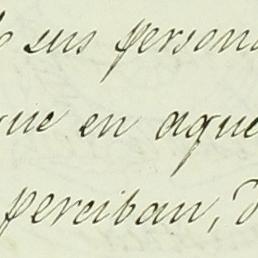 sus person
que en aque
perciban,